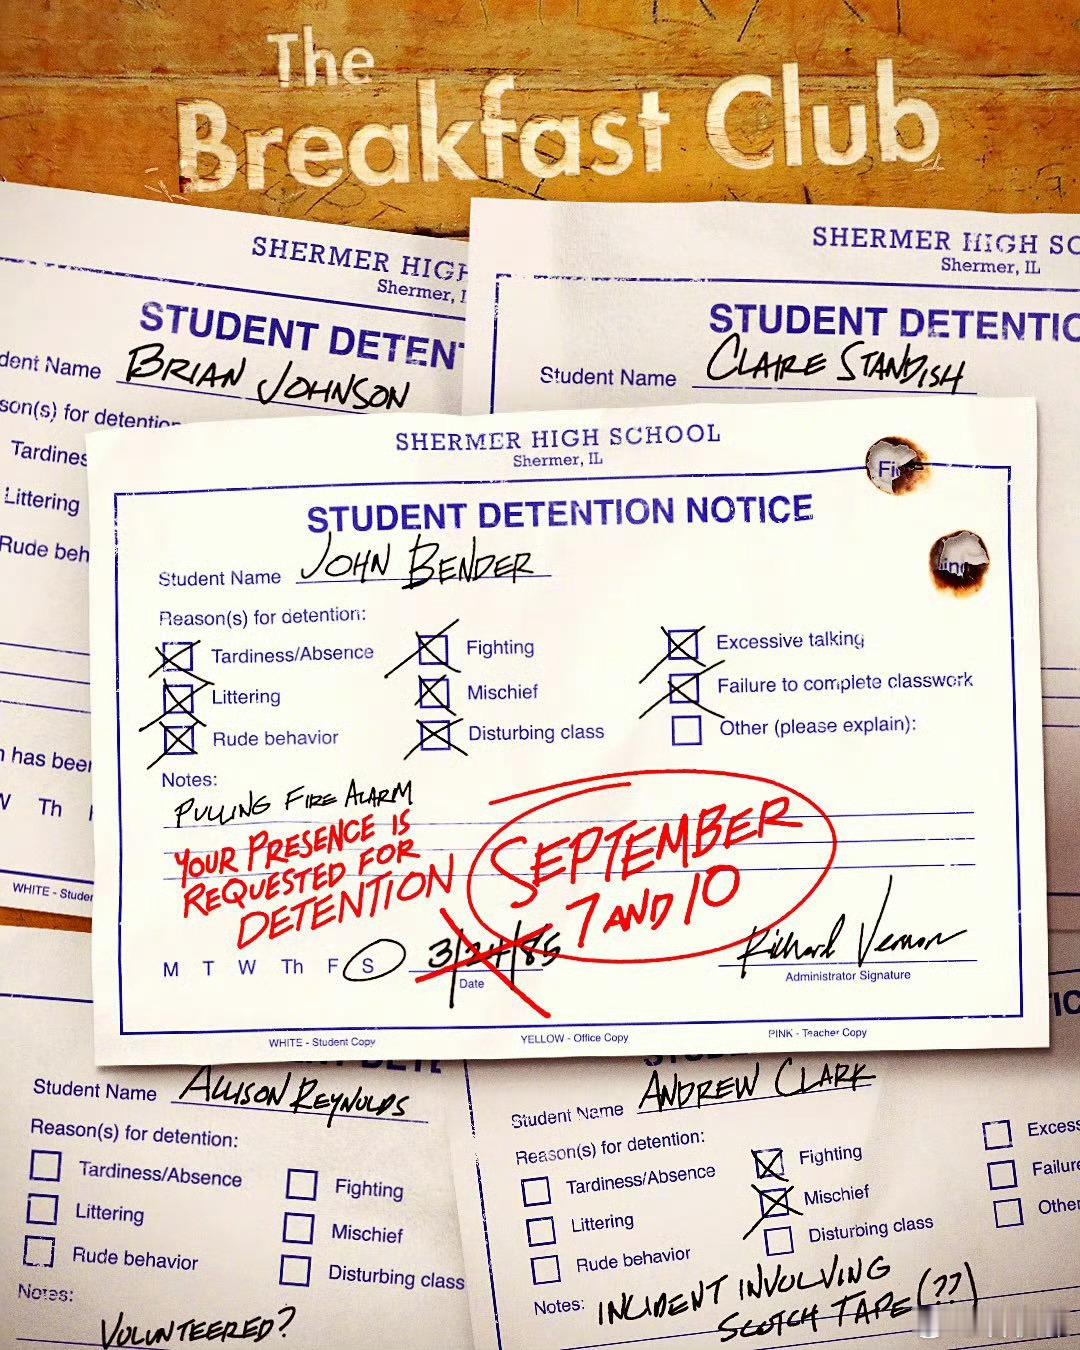 The
Breakfast Club
SHERMER HIGH
Shermer,
STUDENT DETEN
dent Name BRIAN JOHNSON
son(s) for detention
Tardines
Littering
Rude beh
has been
W Th
WHITE - Studen
SHERMER HIGH SC
Shermer, IL
STUDENT DETENTIO
Student Name CLAIRE STANDISH
SHERMER HIGH SCHOOL
Shermer, IL
STUDENT DETENTION NOTICE
Student Name JOHN BENDER
Reason(s) for detention:
Tardiness/Absence Fighting Excessive talking
Littering Mischief Failure to complete classwork
Rude behavior Disturbing class Other (please explain):
Notes:
PULLING FIRE ALARM
YOUR PRESENCE IS
REQUESTED FOR
DETENTION
SEPTEMBER
7 AND 10
M T W Th F S 3/24/85 Richard Vernon
Date Administrator Signature
WHITE - Student Copy YELLOW - Office Copy PINK - Teacher Copy
Student Name ALLISON REYNOLDS
Reason(s) for detention:
Tardiness/Absence Fighting
Littering Mischief
Rude behavior Disturbing class
Notes:
VOLUNTEERED?
Student Name ANDREW CLARK
Reason(s) for detention:
Tardiness/Absence Fighting Excess
Littering Mischief Failure
Rude behavior Disturbing class Other
Notes: INCIDENT INVOLVING
SCOTCH TAPE (??)